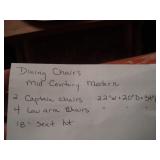 Dining Chairs
Mid Century Modern
2 Captain chairs 22"W x 20"D x 34"
4 Low arm Chairs " "
18" Seat ht